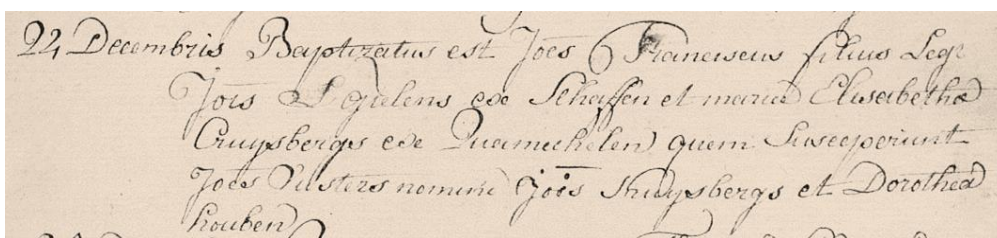 22 Decembris Baptizatus est Joēs Franciscus filius Legt
Joīs Egielens exe Schaffen et maria Elisabetha
Cruysbergs exe Quamechelen quem susceperunt
Joēs nomine Joīs Kruysbergs et Dorothea
houben